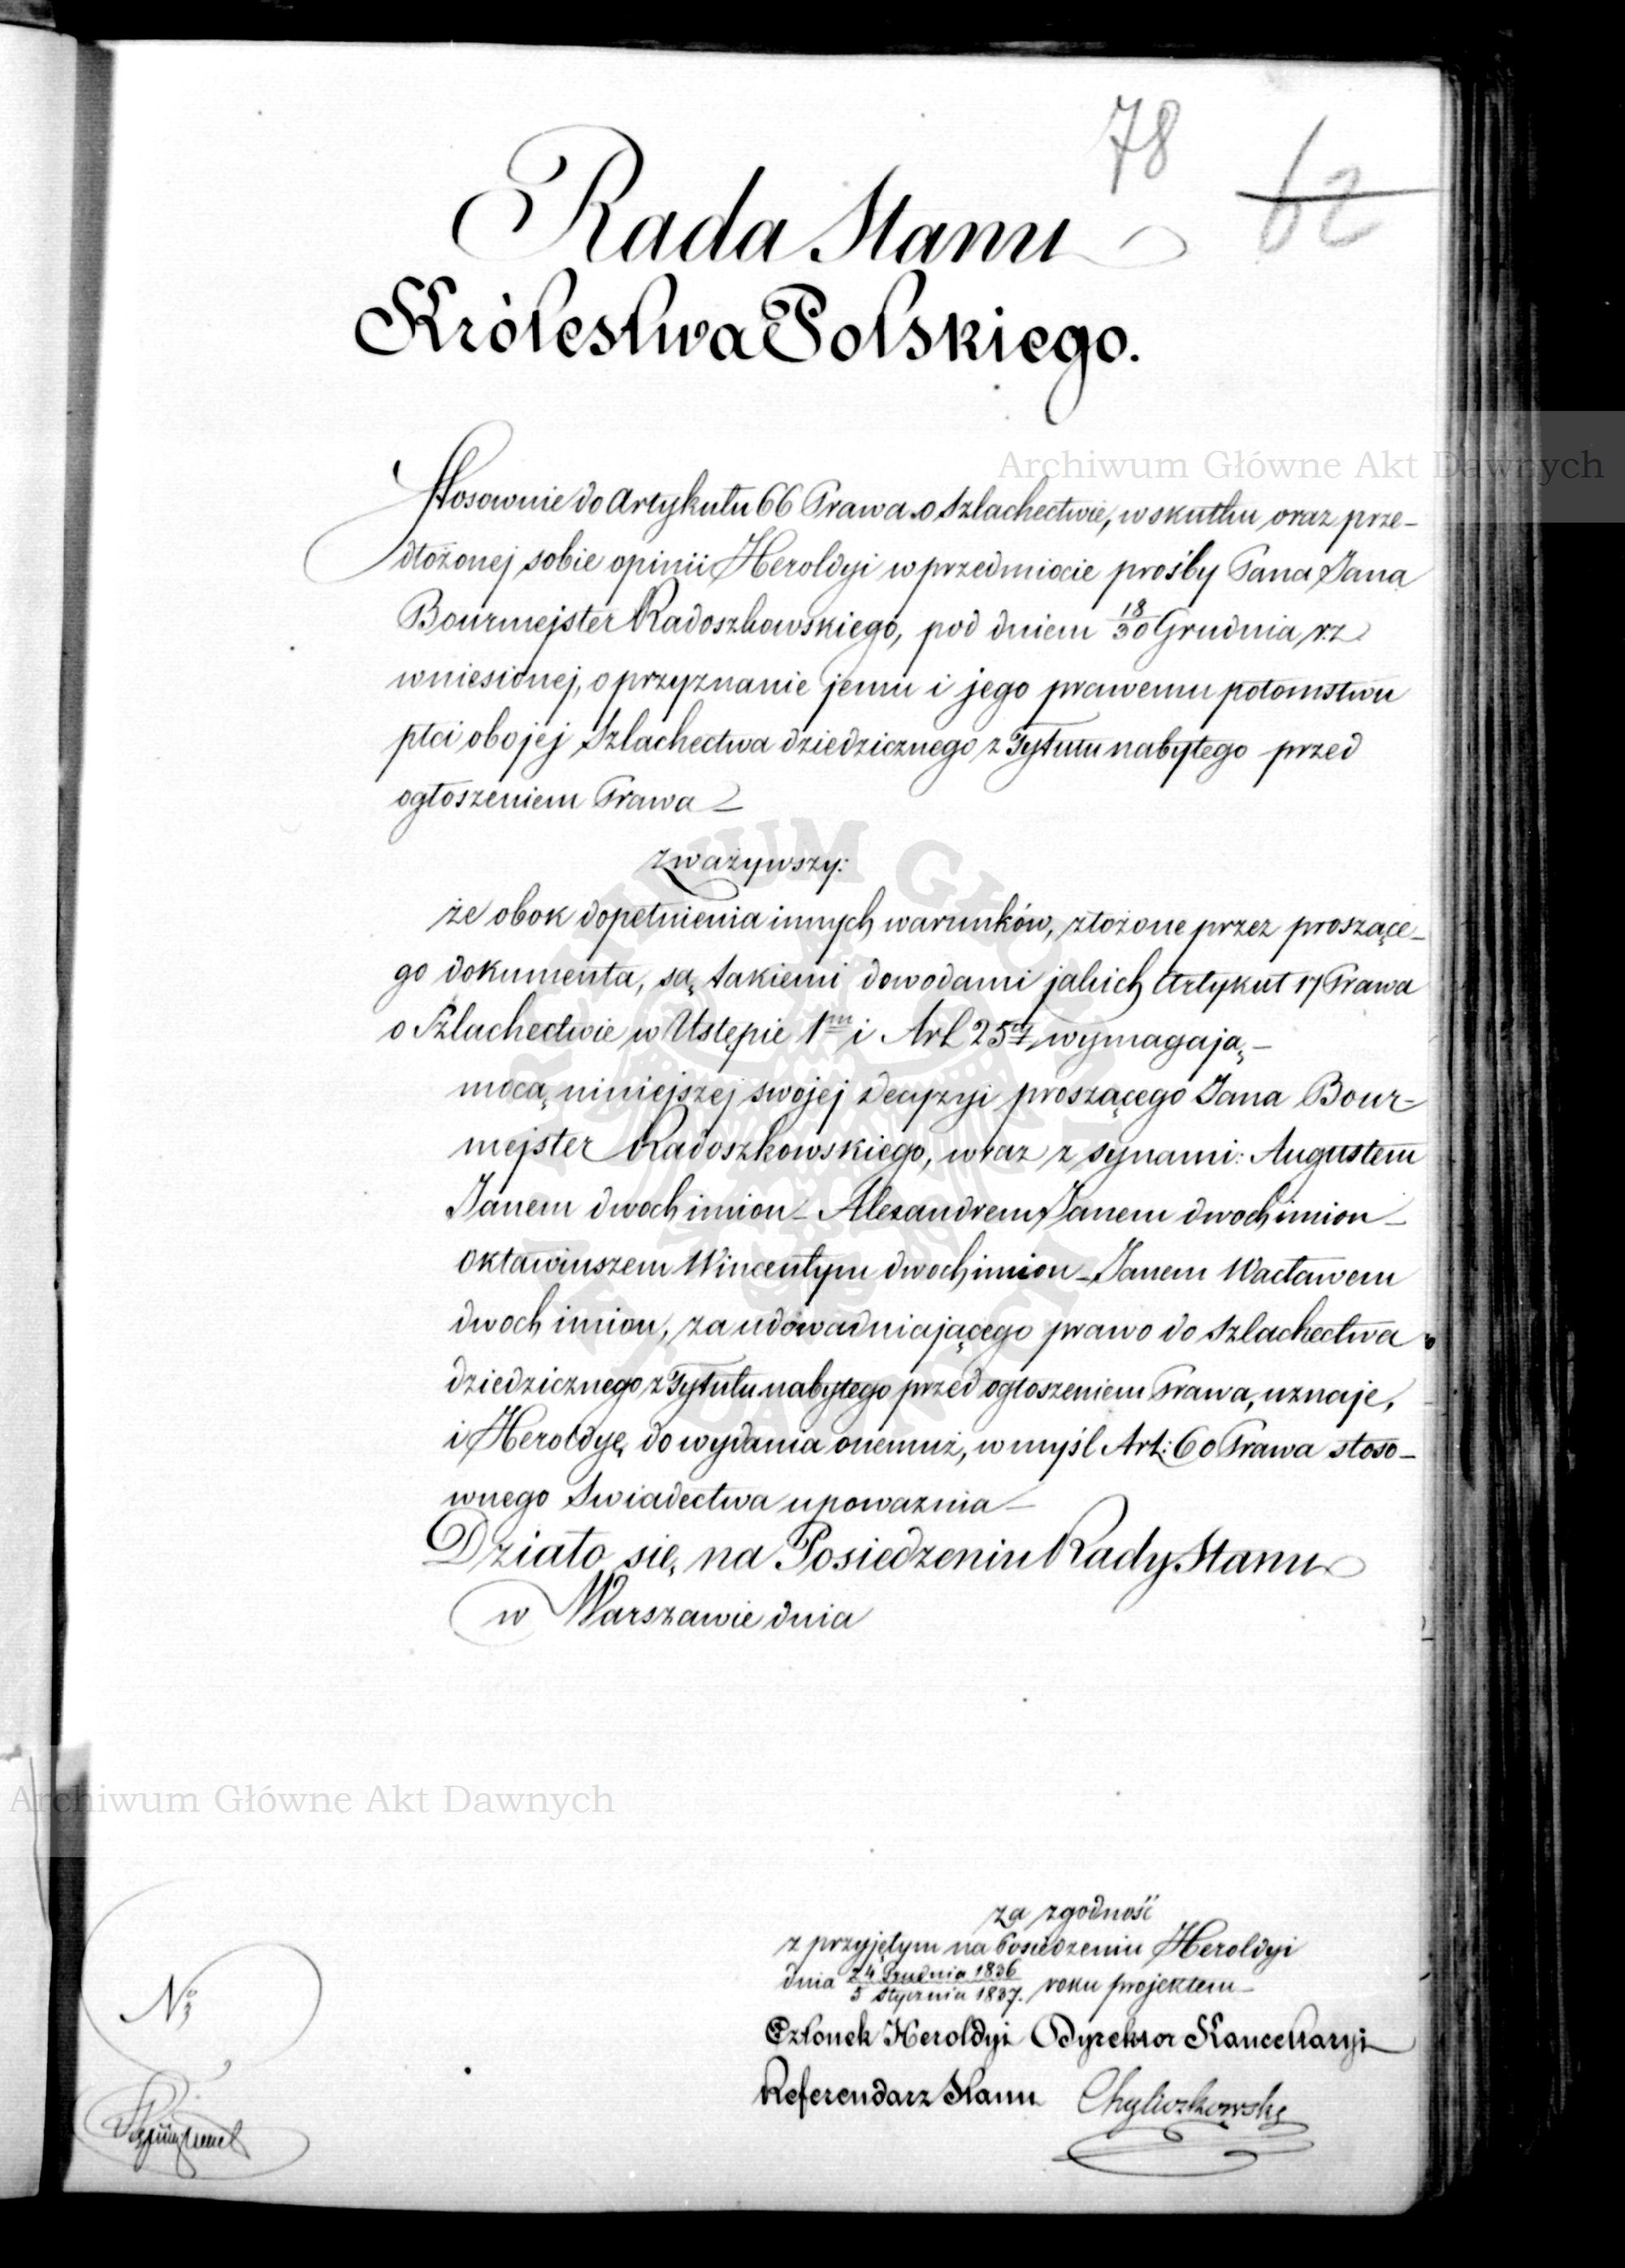 78
62
Rada Stanu
Królestwa Polskiego.
Archiwum Główne Akt Dawnych
Stosownie do Artykułu 66 Prawa o Szlachectwie, w skutku oraz prze-
dłożonej sobie opinii Heroldyi w przedmiocie prośby Pana Jana
Bourmejster Radoszkowskiego, pod dniem 18/30 Grudnia r.z
wniesionej, o przyznanie jemu i jego prawemu potomstwu
płci obojej Szlachectwa dziedzicznego z Tytułu nabytego przed
ogłoszeniem Prawa –
zważywszy:
że obok dopełnienia innych warunków, złożone przez proszące-
go dokumenta, są takiemi dowodami jakich Artykuł 17 Prawa
o Szlachectwie w Ustępie 1m i Art 25ty wymagają, –
mocą niniejszej swojej decyzyi proszącego Jana Bour-
mejster Radoszkowskiego, wraz z synami: Augustem
Janem dwoch imion – Alexandrem Janem dwoch imion –
Oktawiuszem Wincentym dwoch imion – Janem Wacławem
dwoch imion, za udowadniającego prawo do Szlachectwa
dziedzicznego z Tytułu nabytego przed ogłoszeniem Prawa, uznaje,
i Heroldyę do wydania onemuż, w myśl Art: 60 Prawa stoso-
wnego Swiadectwa upoważnia –
Działo się na Posiedzeniu Rady Stanu
w Warszawie dnia
Archiwum Główne Akt Dawnych
za zgodność
z przyjętym na Posiedzeniu Heroldyi
dnia 24 Grudnia 1836 / 5 Stycznia 1837. roku projektem –
Członek Heroldyi Dyrektor Kancellaryi
Referendarz Stanu Chyliczkowski
No